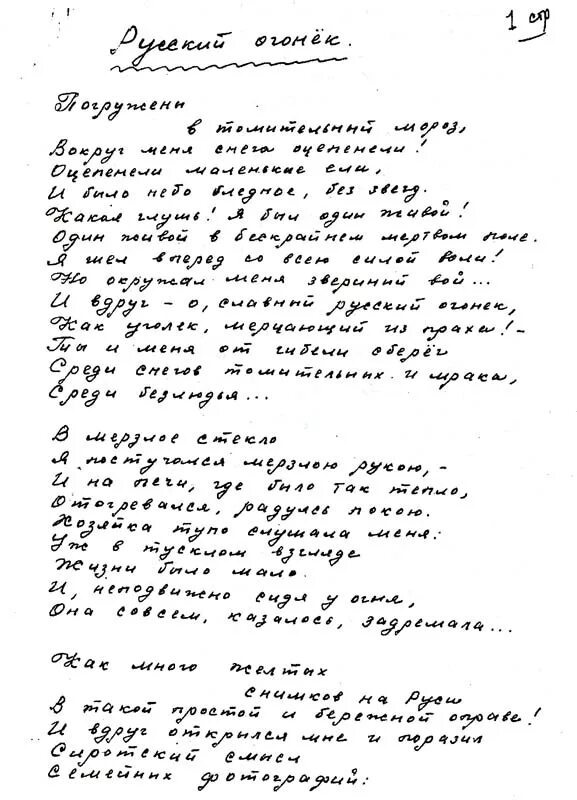 1 стр
Русский огонёк.
Погружены
в томительный мороз,
Вокруг меня снега оцепенели!
Оцепенели маленькие ели,
И было небо бледное, без звезд.
Какая глушь! Я был один живой!
Один живой в бескрайнем мертвом поле.
Я шел вперед со всею силой воли!
Но окружал меня звериный вой...
И вдруг – о, славный русский огонек,
Как уголек, мерцающий из праха! –
Ты и меня от гибели сберёг
Среди снегов томительных и мрака,
Среди безлюдья...
В мерзлое стекло
Я постучался мерзлою рукою, –
И на печи, где было так тепло,
Отогревался, радуясь покою.
Хозяйка тупо слушала меня:
Уж в тусклом взгляде
Жизни было мало.
И, неподвижно сидя у огня,
Она совсем, казалось, задремала...
Как много желтых
снимков на Руси
В такой простой и бережной оправе!
И вдруг открылся мне и поразил
Сиротский смысл
Семейных фотографий: